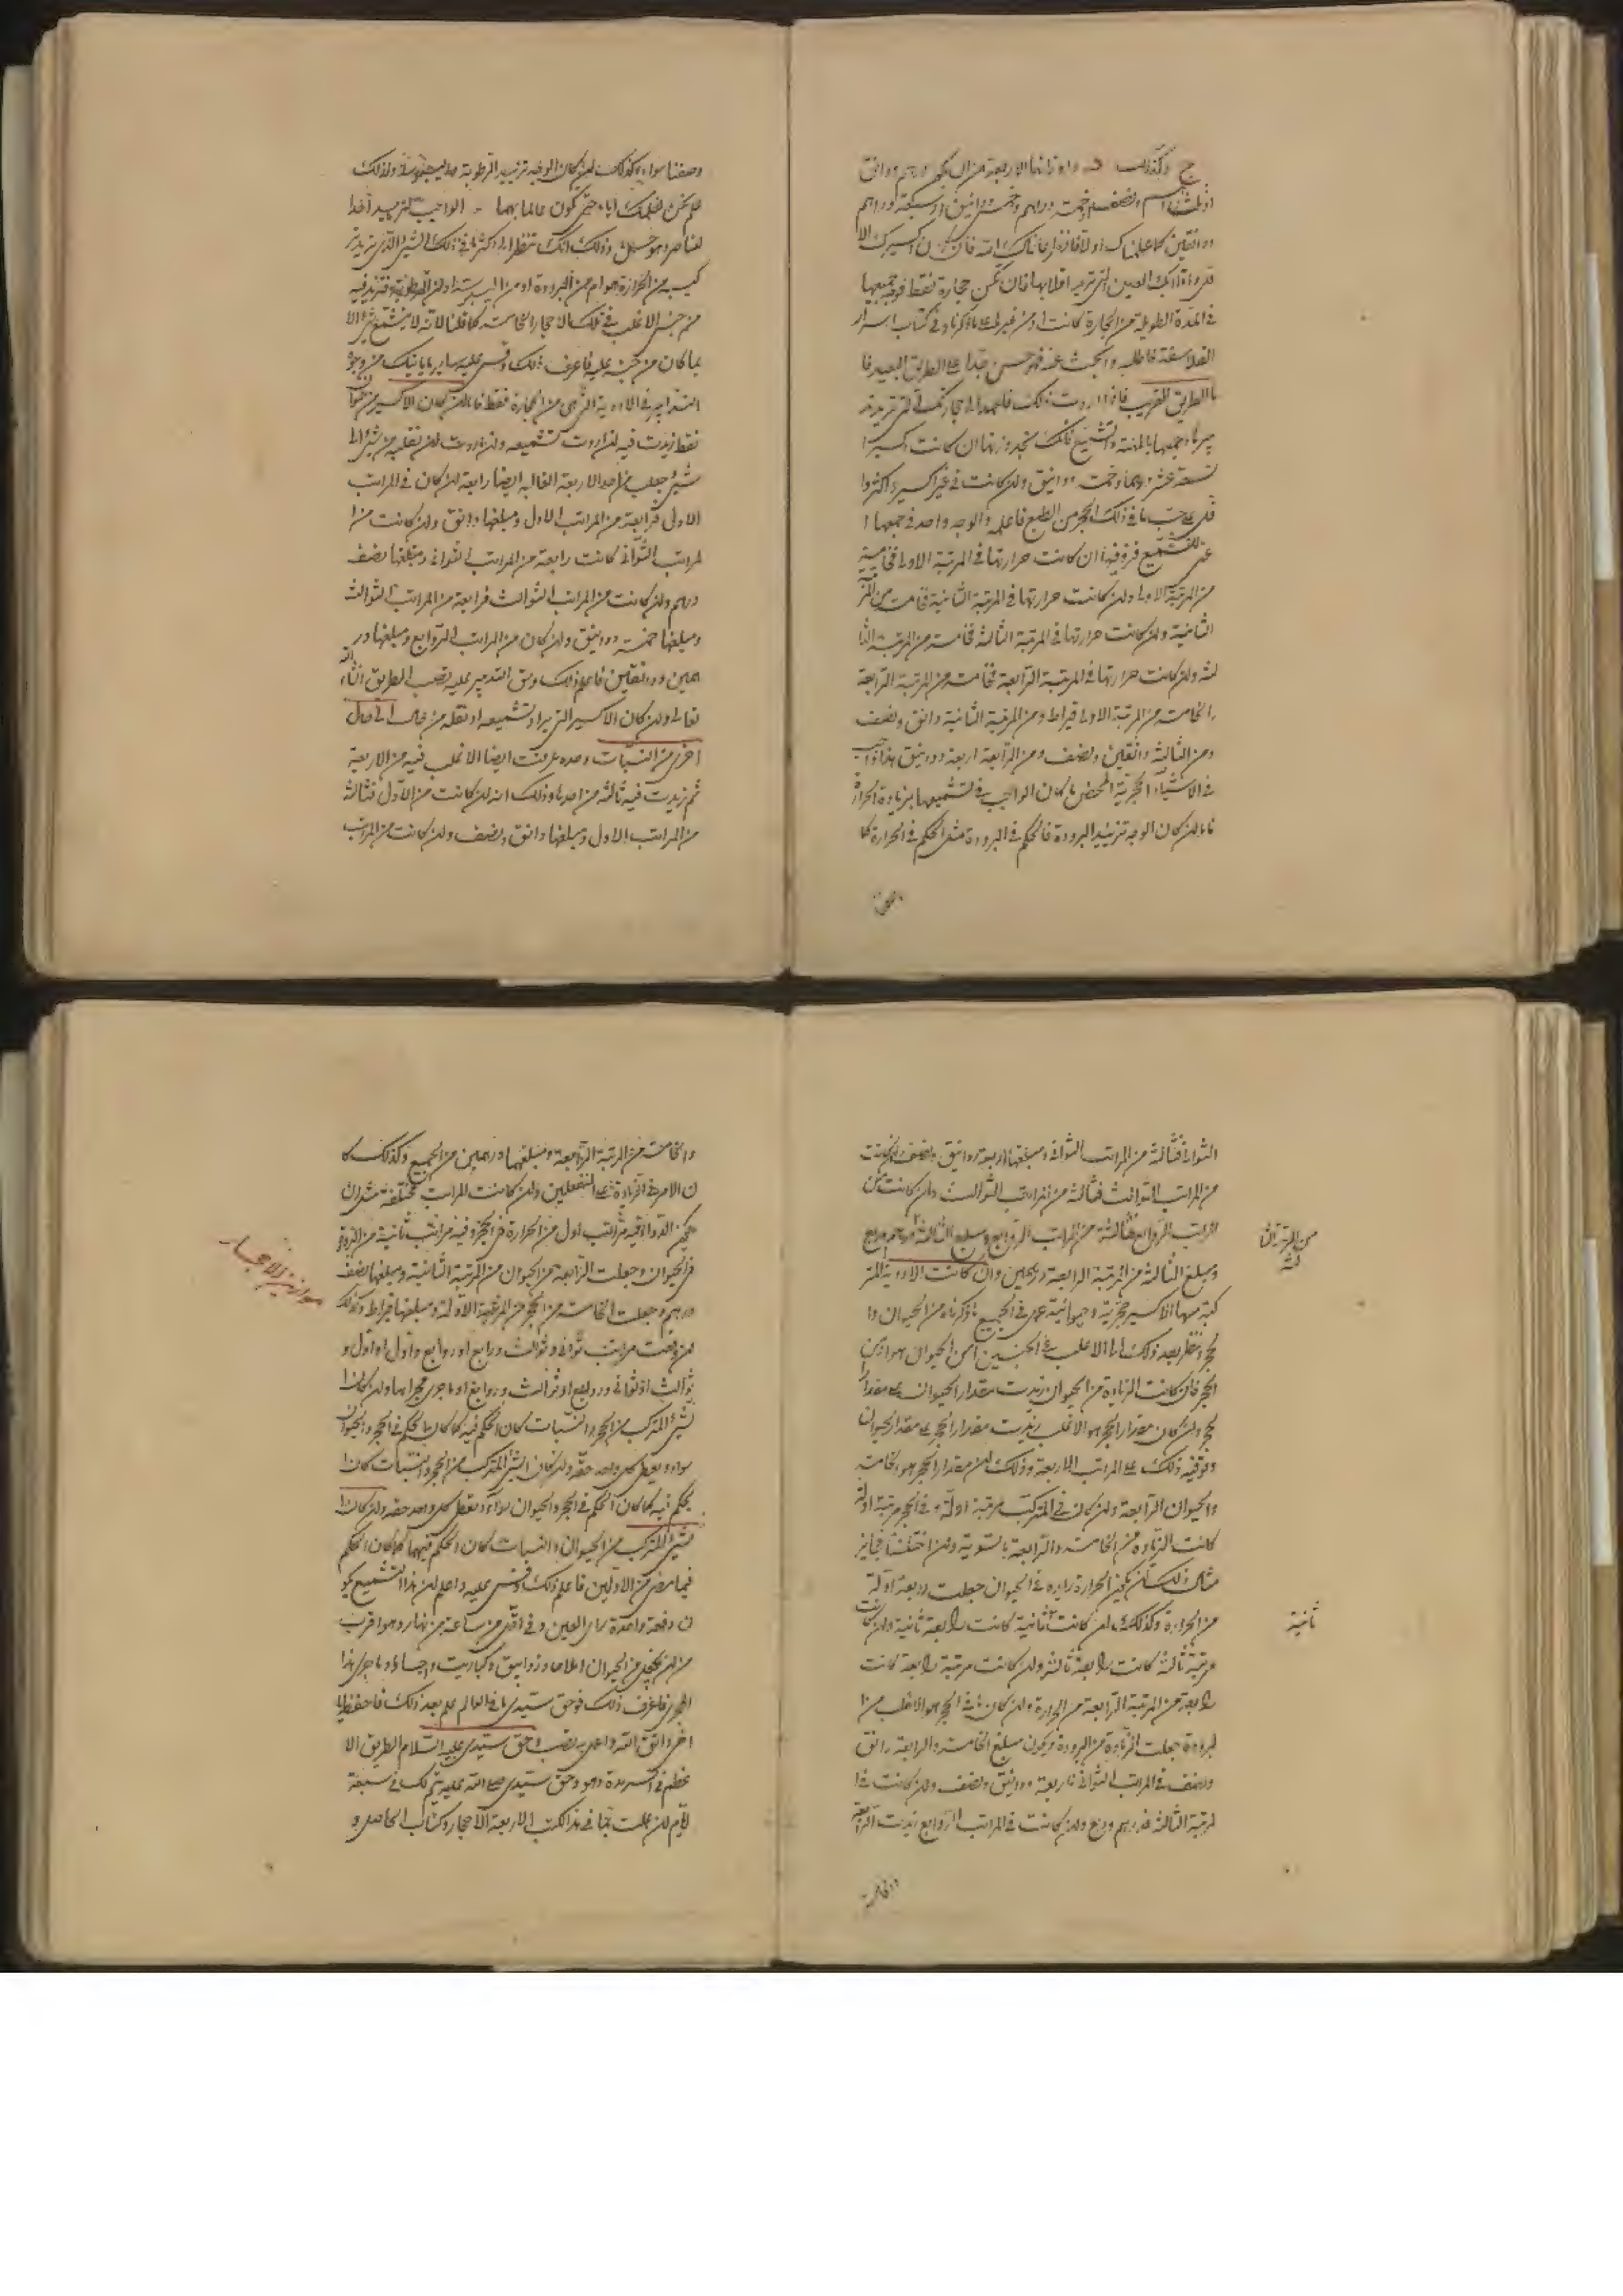 ج وكذلك د واوزانها الاربعة من ان يكون درهم ودانق
او ثلثة دراهم ونصف او خمسة دراهم وخمس دوانيق او سبعة دراهم
ودانقين كما علمناك اولا
في المدة الطويلة من الحجارة كانت او من غيرها على ما ذكرناه في كتاب اسرار
الفلاسفة فاطلبه وابحث عنه فهو حسن جدا على الطريق البعيد فا
ما الطريق القريب فاذا اردت ذلك فاعمد الى حجارتك التي تريد تد
بيرها وجمعها بالمهنة والتشميع فانك تجد وزنها ان كانت اكسيرا
سبعة عشر درهما وخمسة دوانيق ولئن كانت في غير اكسير فاكثر وا
قل على حسب ما في ذلك الحجر من الطبع فاعلمه والوجه واحد في جمعها ا
عني التشميع فزد فيها ان كانت حرارتها في المرتبة الاولى فخامسة
من المرتبة الاولى ولئن كانت حرارتها في المرتبة الثانية فخامسة من المرتبة
الثانية ولئن كانت حرارتها في المرتبة الثالثة فخامسة من المرتبة الثا
لثة ولئن كانت حرارتها في المرتبة الرابعة فخامسة من المرتبة الرابعة
والخامسة من المرتبة الاولى قيراط ومن المرتبة الثانية دانق ونصف
ومن الثالثة دانقين ونصف ومن الرابعة اربعة دوانيق هذا واجب
في الاشياء الحجرية المحض ما كان الواجب في تشميعها بزيادة الحرارة
فاما لئن كان الوجه تزييد البرودة فالحكم في البرودة مثل الحكم في الحرارة كما
وصفنا
وصفنا سواء وكذلك لئن كان الوجه تزييد الرطوبة واليبوسة ولذلك
فلم نحن نعلمك اياه حتى تكون عالما بهما الواجب لتزييد احدا
لعناصر وهو سهل وذلك انك تنظر الى اكثر ما في ذلك الشيء الذي تريد تر
كيبه من الحرارة هو ام من البرودة او من اليبوسة او من الرطوبة فتزيد فيه
من جنس الاغلب في تلك الاحجار الخامسة كما قلنا لانه لا يتشمع شيء الا
بما كان من جنسه عليه فاعرف ذلك وقس عليه ساير ما ياتيك من وجوه
التدابير في الادوية التي هي من الحجارة فقط فاما لئن كان الاكسير من حيوان
فقط زيدت فيه لئن اردت تشميعه ولئن اردت لئن تقلبه من شيء الى
شيء جعلت من احد الاربعة الغالبة ايضا رابعة لئن كان في المراتب
الاول فرابعة من المراتب الاول ومبلغها دانق ولئن كانت من ا
لمراتب الثواني كانت رابعة من المراتب الثواني ومبلغها نصف
درهم ولئن كانت من المراتب الثوالث فرابعة من المراتب الثوالث
ومبلغها خمسة دوانيق ولئن كان من المراتب الروابع ومبلغها در
همين ودانقين فاعلم ذلك وسق التدبير عليه تصب الطريق انشاء الله
تعالى ولئن كان الاكسير الذي يراد تشميعه او نقله من حال الى حال
اخرى من النبات وحده عرفت ايضا الاغلب فيه من الاربعة
ثم زيدت فيه ثالثة من احدها وذلك انه لئن كانت من الاول فثالثة
من المراتب الاول ومبلغها دانق ونصف ولئن كانت من المراتب
الثواني فثالثة من المراتب الثواني ومبلغها اربعة دوانيق ونصف ولئن كانت
من المراتب الثوالث فثالثة من المراتب الثوالث ولئن كانت من
المراتب الروابع فثالثة من المراتب الروابع ومبلغ الثالثة درهم وربع
من المرتبة الثا
لثة
ومبلغ الثالثة من المرتبة الرابعة درهمين وان كانت الادوية المر
كبة منها الاكسير حجرية وحيوانية عمل في الجميع ما ذكرناه من الحيوان وا
لحجر ونظر بعد ذلك الى الاغلب على الجنسين امن الحيوان هو او من
الحجر فان كانت الزيادة من الحيوان زيدت مقدار الحيوان على مقدار ا
لحجر ولئن كان مقدار الحجر هو الاغلب زيدت مقدار الحجر على مقدار الحيوان
وتوفيه ذلك على المراتب الاربعة وذلك لئن مقدار الحجر هو الخامسة
والحيوان الرابعة ولئن كان في المركب مرتبة اولة وفي الحجر مرتبة اولة
كانت الزيادة من الخامسة والرابعة بالسوية ولئن اختلفا فجايز
مثال ذلك ان تكون الحرارة زايدة في الحيوان جعلت رابعة اولة
من الحرارة وكذلك لئن كانت ثانية كانت رابعة ثانية ولئن كانت
ثانية
مرتبة ثالثة كانت رابعة ثالثة ولئن كانت مرتبة رابعة كانت
رابعة من المرتبة الرابعة من الحرارة ولئن كان في الحجر هو الاغلب من ا
لبرودة جعلت الزيادة من البرودة ويكون مبلغ الخامسة والرابعة دانق
ونصف في المراتب الثواني فاربعة دوانيق ونصف ولئن كانت في ا
لمرتبة الثالثة فدرهم وربع ولئن كانت في المراتب الروابع زيدت الرابعة
والخامسة
والخامسة من المرتبة الرابعة ومبلغهما درهمين من الجميع وكذلك كا
ن الامر في الزيادة على المنفعلين ولئن كانت المراتب مختلفة مثل ان
يكون الدواء فيه مراتب اول من الحرارة في الحجر وفيه مراتب ثانية من البرودة
في الحيوان وجعلت الرابعة من الحيوان من المرتبة الثانية ومبلغها نصف
موازين الاحجار
درهم وجعلت الخامسة من الحجر من المرتبة الاولة ومبلغها قيراط وكذلك
لئن وقعت مراتب ثواني وثوالث وروابع او روابع واول او اول و
ثوالث او ثواني وروابع او ثوالث وروابع او ما جرى مجراها ولئن كان ا
لشيء المركب من الحجر والنبات كان الحكم فيه كما كان الحكم في الحجر والحيوان
سواء ويعطى كل واحد حقه ولئن كان الشيء المركب من الحجر والنبات كان ا
لحكم فيه كما كان الحكم في الحجر والحيوان سواء ويعطى كل واحد حقه ولئن كان ا
لشيء المركب من الحيوان والنبات كان الحكم فيهما كما كان الحكم
فيما مضى من الاولين فاعلم ذلك وقس عليه واعلم لئن هذا التشميع يكو
ن دفعة واحدة كراي العين وفي اقل من ساعة من نهار وهو اقرب
من لئن يجعل من الحيوان املاحا وزوابيق وكباريت واجسادا وما جرى هذا
المجرى فاعرف ذلك فوحق سيدي ما في العالم علم بعد ذلك فاحفظه يا
اخي واتق الله واعمل به تصب وحق سيدي عليه السلام الطريق الا
عظم في اسرعه وهو وحق سيدي صلى الله عليه يتم لك في سبعة
ايام لئن عملت بما في هذا الكتب الاربعة الاحجار وكتاب الحاصل و